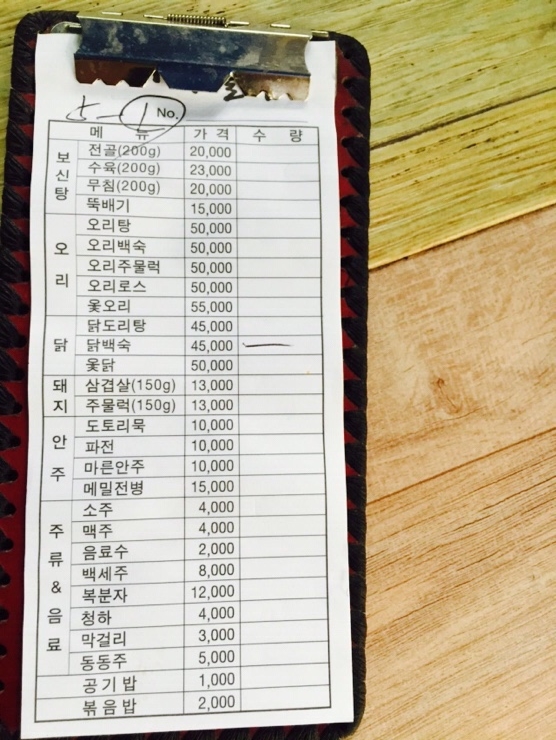 5-1 No.
메 뉴 가 격 수 량
보신탕 전골(200g) 20,000
수육(200g) 23,000
무침(200g) 20,000
뚝배기 15,000
오리 오리탕 50,000
오리백숙 50,000
오리주물럭 50,000
오리로스 50,000
옻오리 55,000
닭 닭도리탕 45,000
닭백숙 45,000
옻닭 50,000
돼지 삼겹살(150g) 13,000
주물럭(150g) 13,000
안주 도토리묵 10,000
파전 10,000
마른안주 10,000
메밀전병 15,000
주류&음료 소주 4,000
맥주 4,000
음료수 2,000
백세주 8,000
복분자 12,000
청하 4,000
막걸리 3,000
동동주 5,000
공기밥 1,000
볶음밥 2,000